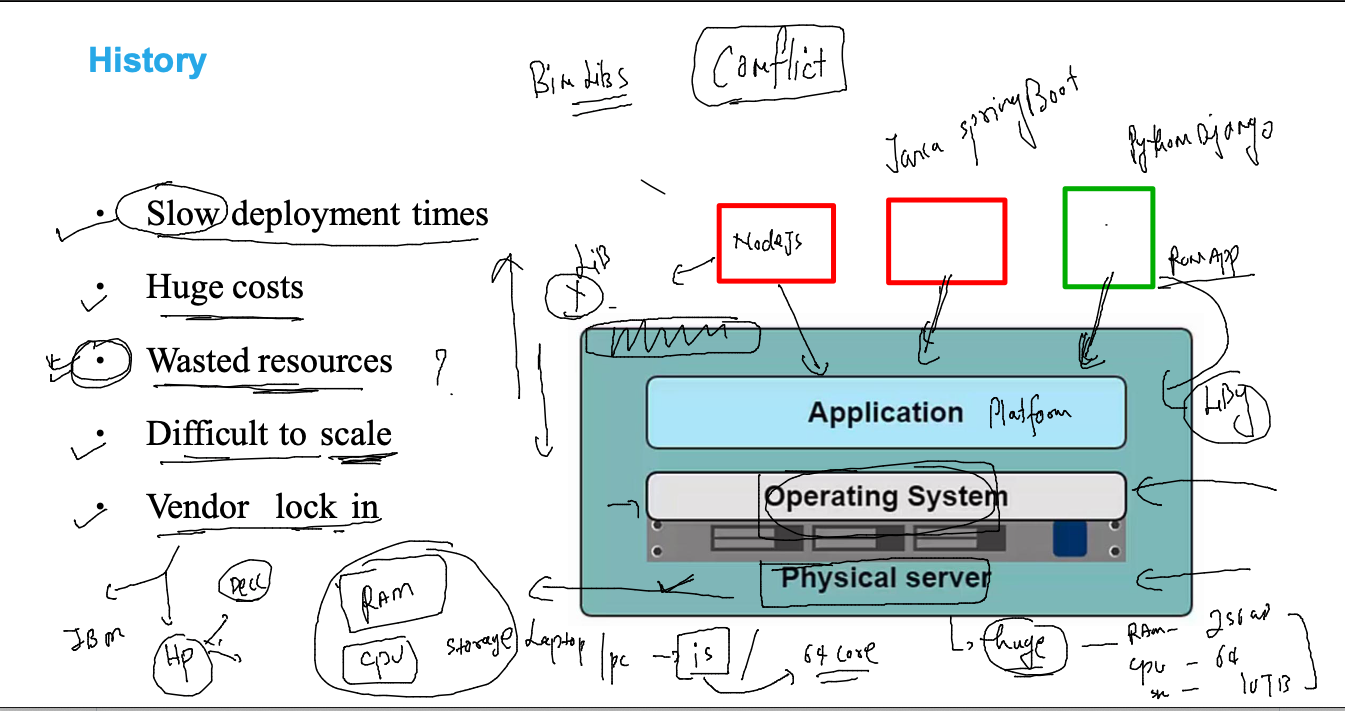 History
Bin Libs
Conflict
Java springBoot
Python Django
• Slow deployment times
• Huge costs
• Wasted resources ?
• Difficult to scale
• Vendor lock in
LiB
NodeJs
Application Platform
Operating System
Physical server
IBM
HP
RAM
CPU
Storage
Laptop / pc
is
64 core
Huge
RAM-
CPU - 64
10TB